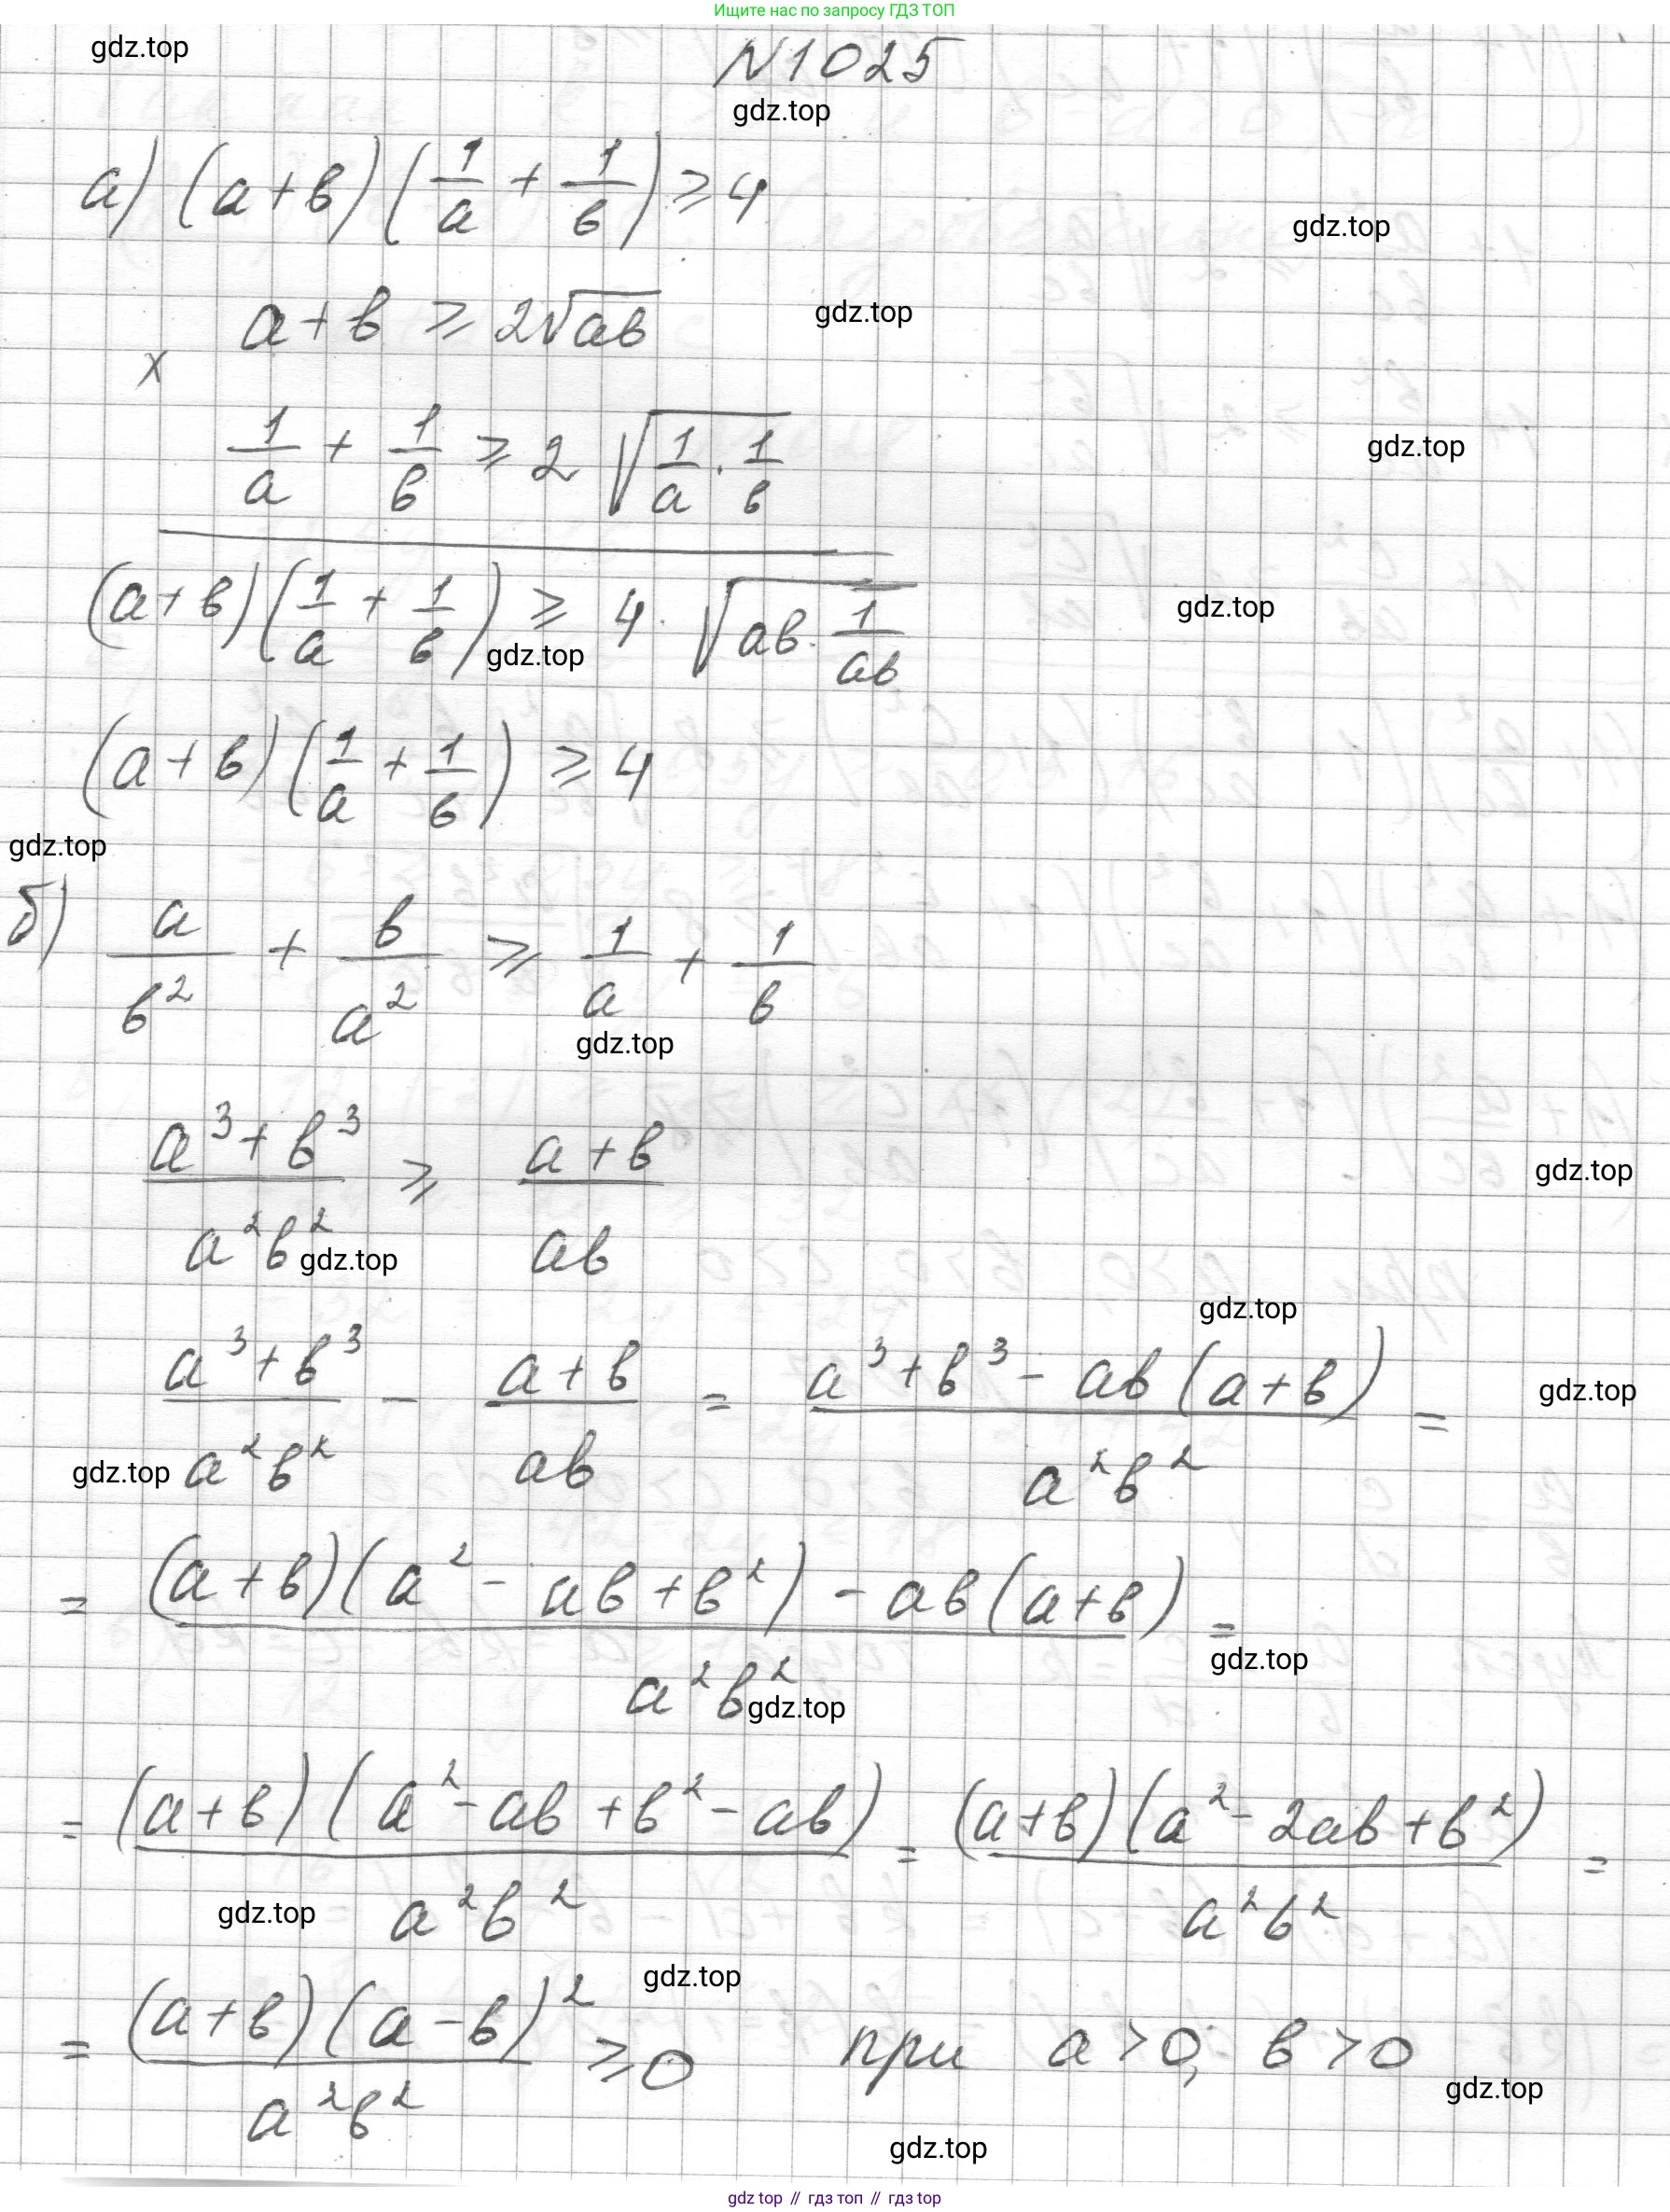 Ищите нас по запросу ГДЗ ТОП
gdz.top
N1025
gdz.top
а) (a+b)(1/a + 1/b) ⩾ 4
gdz.top
a+b ⩾ 2√ab
gdz.top
×
1/a + 1/b ⩾ 2√(1/a · 1/b)
gdz.top
(a+b)(1/a + 1/b) ⩾ 4·√(ab · 1/ab)
gdz.top
gdz.top
(a+b)(1/a + 1/b) ⩾ 4
gdz.top
б) a/b² + b/a² ⩾ 1/a + 1/b
gdz.top
(a³+b³)/a²b² ⩾ (a+b)/ab
gdz.top
gdz.top
gdz.top
(a³+b³)/a²b² − (a+b)/ab = (a³+b³−ab(a+b))/a²b² =
gdz.top
gdz.top
= ((a+b)(a²−ab+b²)−ab(a+b))/a²b² =
gdz.top
gdz.top
= (a+b)(a²−ab+b²−ab)/a²b² = (a+b)(a²−2ab+b²)/a²b² =
gdz.top
gdz.top
= (a+b)(a−b)²/a²b² ⩾ 0 при a>0; b>0
gdz.top
gdz.top
gdz top // гдз топ // gdz top